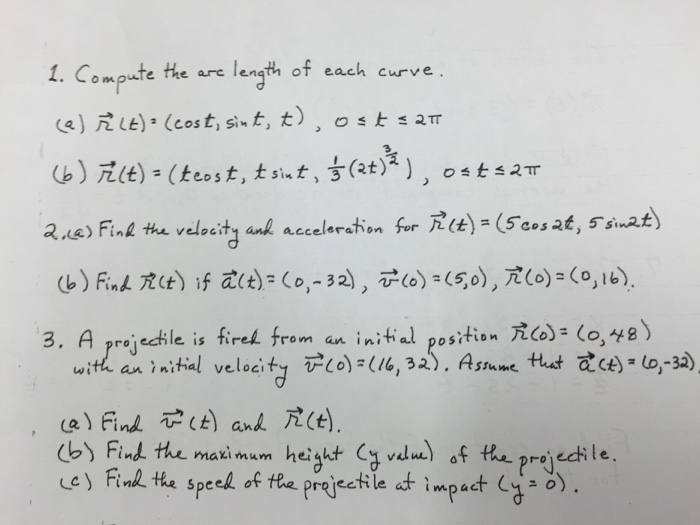 1. Compute the arc length of each curve.
(a) r⃗(t) = (cost, sint, t), 0 ≤ t ≤ 2π
(b) r⃗(t) = (tcost, t sint, 1/3 (2t)^(3/2)), 0 ≤ t ≤ 2π
2.(a) Find the velocity and acceleration for r⃗(t) = (5cos2t, 5sin2t)
(b) Find r⃗(t) if a⃗(t) = (0,-32), v⃗(0) = (5,0), r⃗(0) = (0,16).
3. A projectile is fired from an initial position r⃗(0) = (0,48)
with an initial velocity v⃗(0) = (16, 32). Assume that a⃗(t) = (0,-32).
(a) Find v⃗(t) and r⃗(t).
(b) Find the maximum height (y value) of the projectile.
(c) Find the speed of the projectile at impact (y = 0).